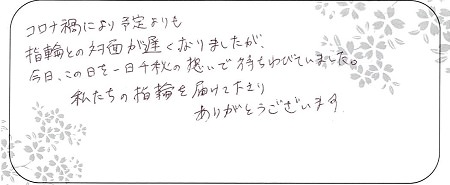 コロナ禍により予定よりも
指輪との対面が遅くなりましたが、
今日、この日を一日千秋の想いで待ちわびていました。
私たちの指輪を届けて下さり
ありがとうございます